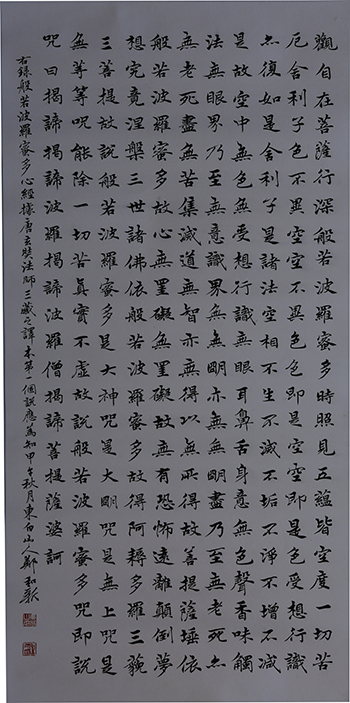 觀自在菩薩行深般若波羅蜜多時照見五蘊皆空度一切苦
厄舍利子色不異空空不異色色即是空空即是色受想行識
亦復如是舍利子是諸法空相不生不滅不垢不淨不增不減
是故空中無色無受想行識無眼耳鼻舌身意無色聲香味觸
法無眼界乃至無意識界無無明亦無無明盡乃至無老死亦
無老死盡無苦集滅道無智亦無得以無所得故菩提薩埵依
般若波羅蜜多故心無罣礙無罣礙故無有恐怖遠離顛倒夢
想究竟涅槃三世諸佛依般若波羅蜜多故得阿耨多羅三藐
三菩提故說般若波羅蜜多是大神咒是大明咒是無上咒是
無等等咒能除一切苦真實不虛故說般若波羅蜜多咒即說
咒曰揭諦揭諦波羅揭諦波羅僧揭諦菩提薩婆訶
右錄般若波羅蜜多心經據唐玄奘法師三藏之譯本第一個誤應為知甲午秋月東白山人鄭和